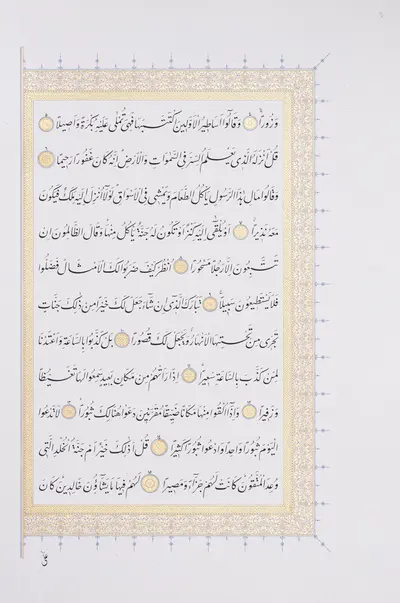 وَزُورًا ۝ وَقَالُوا أَسَاطِيرُ الْأَوَّلِينَ اكْتَتَبَهَا فَهِيَ تُمْلَىٰ عَلَيْهِ بُكْرَةً وَأَصِيلًا ۝
قُلْ أَنْزَلَهُ الَّذِي يَعْلَمُ السِّرَّ فِي السَّمٰوَاتِ وَالْأَرْضِ إِنَّهُ كَانَ غَفُورًا رَحِيمًا ۝
وَقَالُوا مَالِ هٰذَا الرَّسُولِ يَأْكُلُ الطَّعَامَ وَيَمْشِي فِي الْأَسْوَاقِ لَوْلَا أُنْزِلَ إِلَيْهِ مَلَكٌ فَيَكُونَ
مَعَهُ نَذِيرًا ۝ أَوْ يُلْقَىٰ إِلَيْهِ كَنْزٌ أَوْ تَكُونُ لَهُ جَنَّةٌ يَأْكُلُ مِنْهَا وَقَالَ الظَّالِمُونَ إِنْ
تَتَّبِعُونَ إِلَّا رَجُلًا مَسْحُورًا ۝ انْظُرْ كَيْفَ ضَرَبُوا لَكَ الْأَمْثَالَ فَضَلُّوا
فَلَا يَسْتَطِيعُونَ سَبِيلًا ۝ تَبَارَكَ الَّذِي إِنْ شَاءَ جَعَلَ لَكَ خَيْرًا مِنْ ذٰلِكَ جَنَّاتٍ
تَجْرِي مِنْ تَحْتِهَا الْأَنْهَارُ وَيَجْعَلْ لَكَ قُصُورًا ۝ بَلْ كَذَّبُوا بِالسَّاعَةِ وَأَعْتَدْنَا
لِمَنْ كَذَّبَ بِالسَّاعَةِ سَعِيرًا ۝ إِذَا رَأَتْهُمْ مِنْ مَكَانٍ بَعِيدٍ سَمِعُوا لَهَا تَغَيُّظًا
وَزَفِيرًا ۝ وَإِذَا أُلْقُوا مِنْهَا مَكَانًا ضَيِّقًا مُقَرَّنِينَ دَعَوْا هُنَالِكَ ثُبُورًا ۝ لَا تَدْعُوا
الْيَوْمَ ثُبُورًا وَاحِدًا وَادْعُوا ثُبُورًا كَثِيرًا ۝ قُلْ أَذٰلِكَ خَيْرٌ أَمْ جَنَّةُ الْخُلْدِ الَّتِي
وُعِدَ الْمُتَّقُونَ كَانَتْ لَهُمْ جَزَاءً وَمَصِيرًا ۝ لَهُمْ فِيهَا مَا يَشَاءُونَ خَالِدِينَ كَانَ
عَلَىٰ